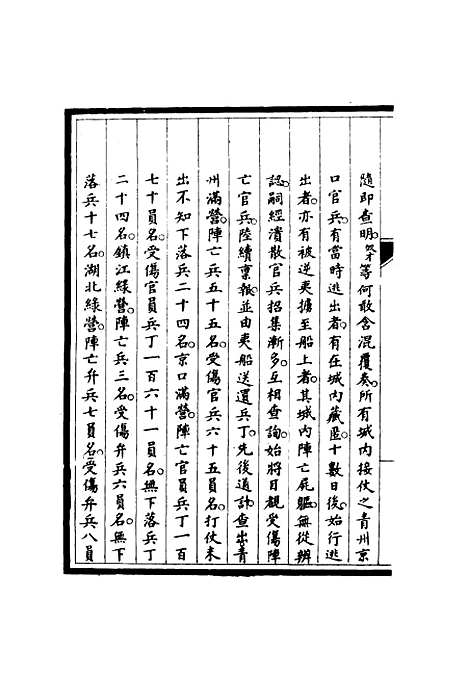 隨即查明。奴才等何敢含混覆奏。所有城內接仗之青州京
口官兵。有當時逃出者。有在城內藏匿。十數日後。始行逃
出者。亦有被逆夷擄至船上者。其城內陣亡屍軀。無從辨
認。嗣經潰散官兵。招集漸多。互相查詢。始將目覩受傷陣
亡官兵。陸續稟報。並由夷船送還兵丁。先後通計。查出青
州滿營。陣亡兵五十五名。受傷官兵六十五員名。打仗未
出不知下落兵二十四名。京口滿營。陣亡官員兵丁一百
七十員名。受傷官員兵丁一百六十一員名。無下落兵丁
二十四名。鎮江綠營。陣亡兵三名。受傷弁兵六員名。無下
落兵十七名。湖北綠營。陣亡弁兵七員名。受傷弁兵八員